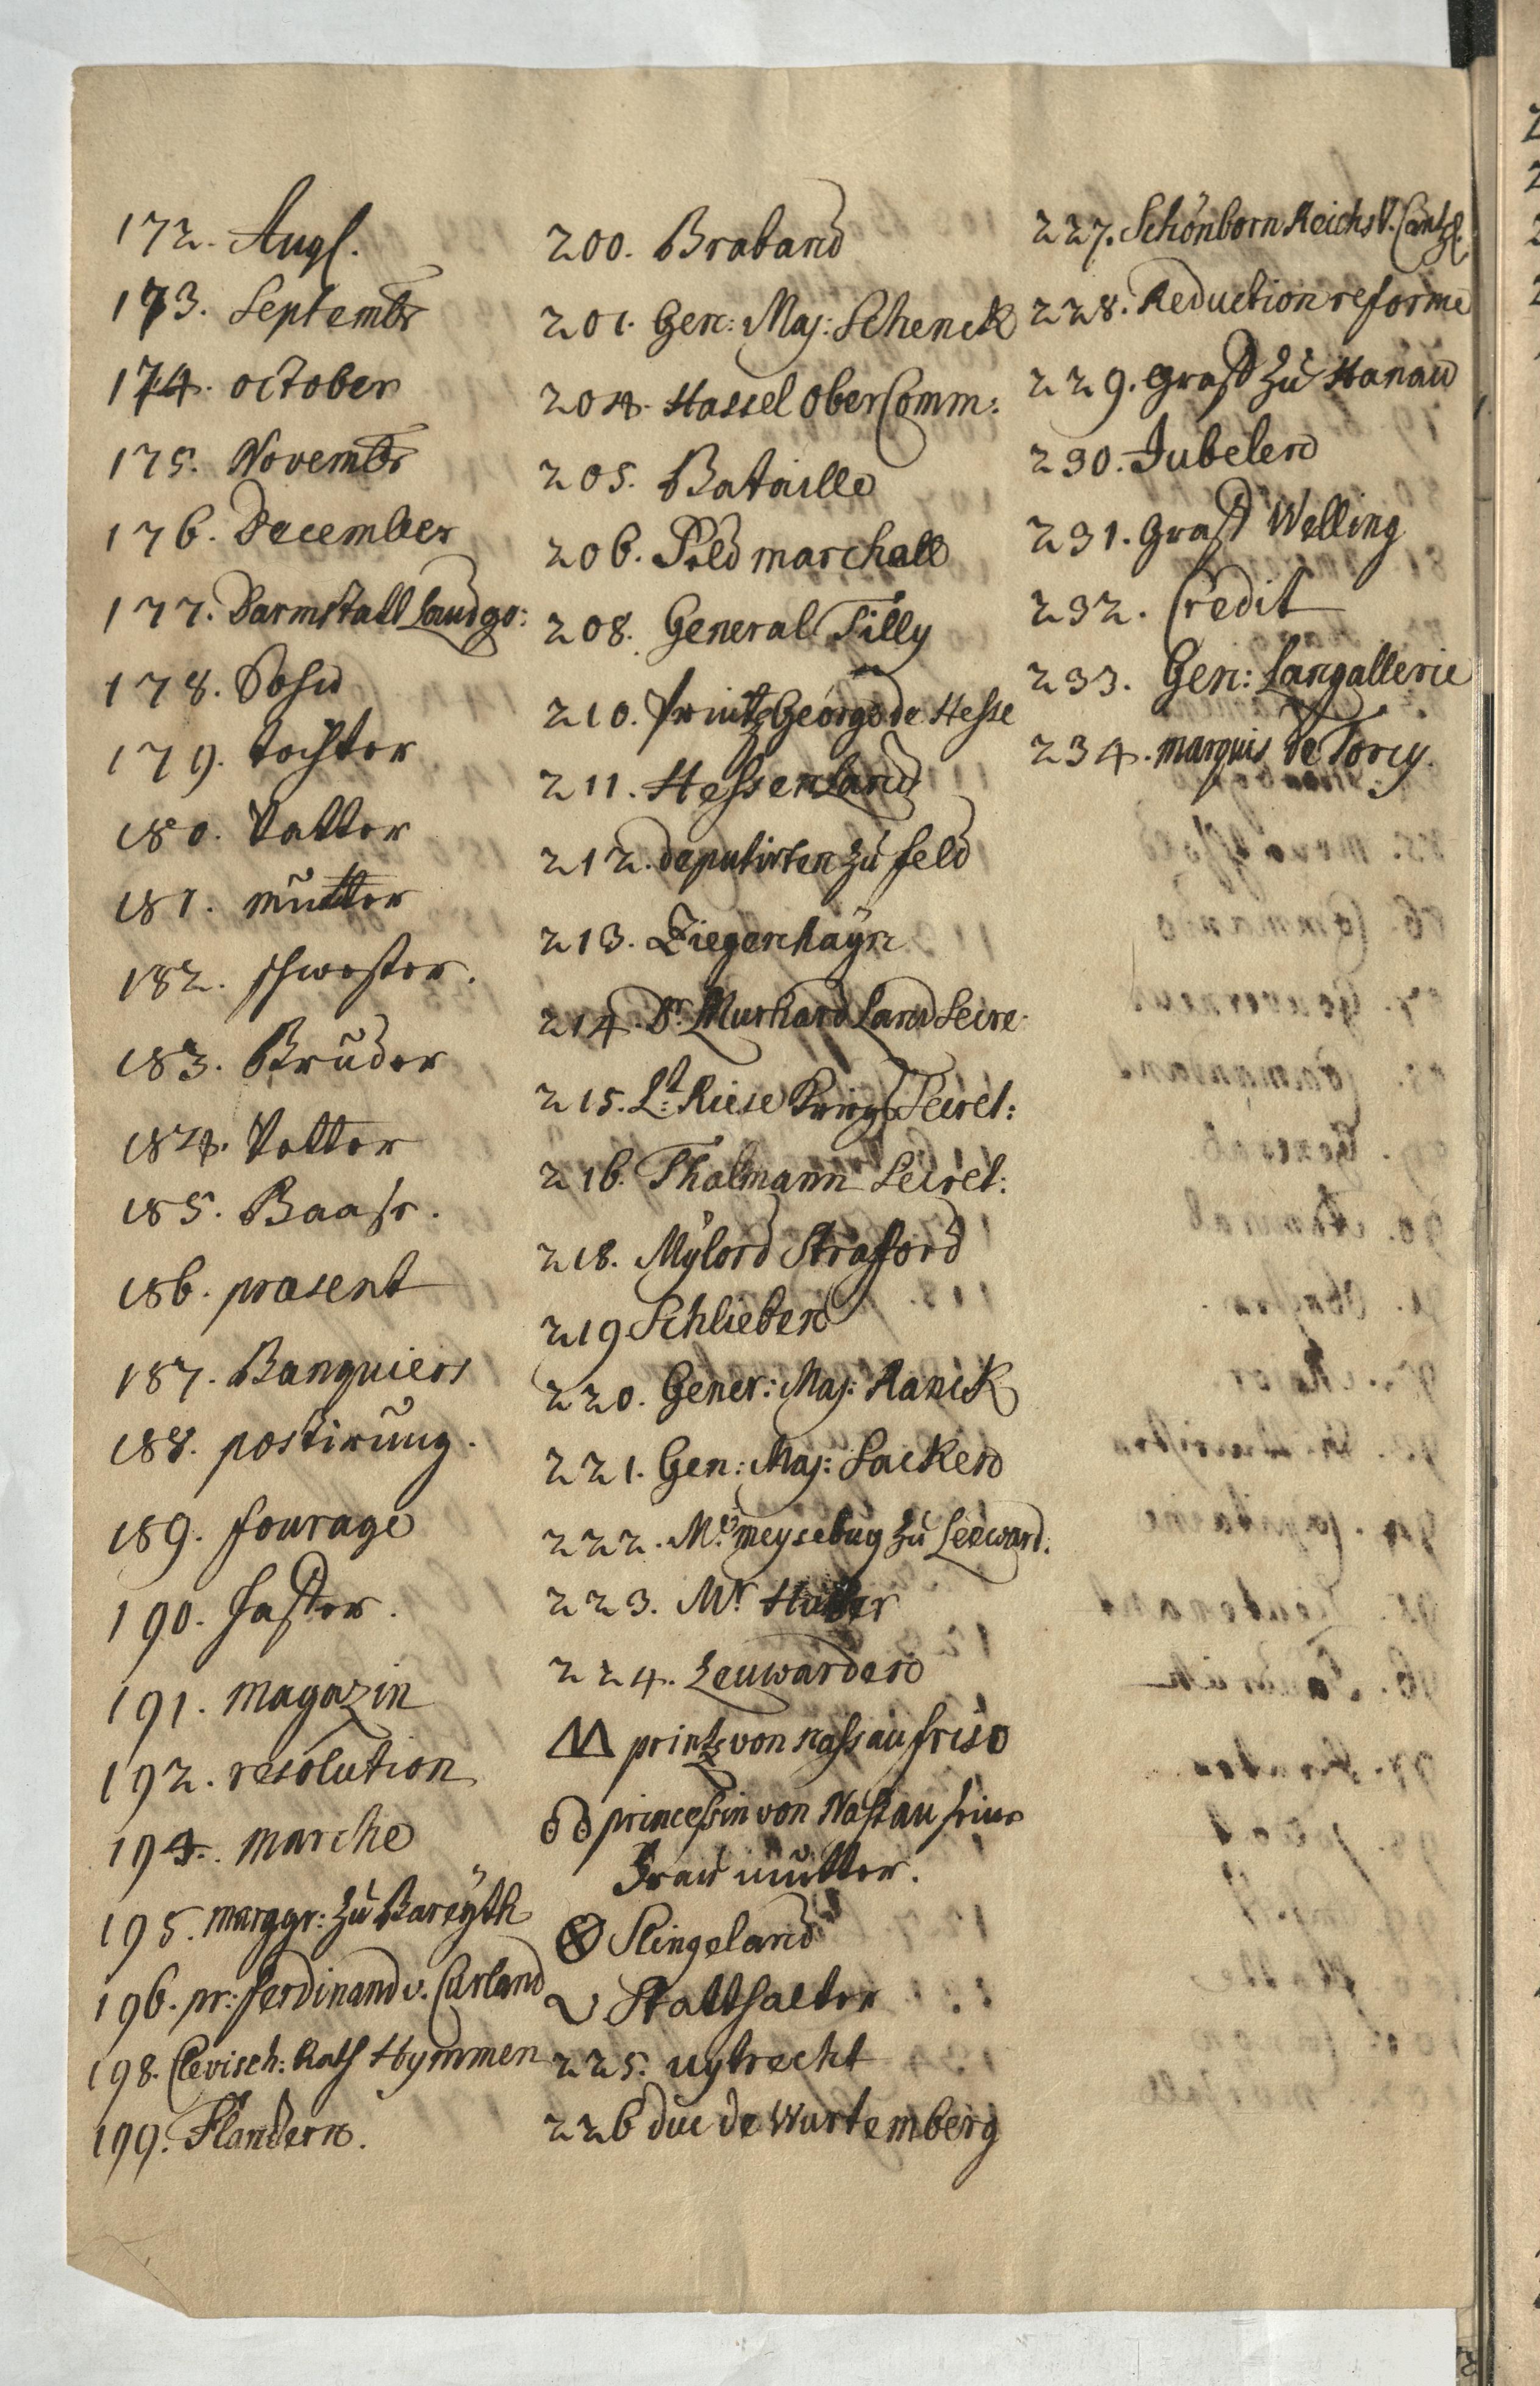 172. Augs.
173. Septembr
174. october
175. Novembr
176. December
177. Darmstatt Landgr:
178. Sohn
179. tochter
180. Vatter
181. mutter
182. schwester.
183. Bruder
184. Vetter
185. Baase.
186. præsent
187. Banquiers
188. postirung.
189. fourage
190. Haffer.
191. magazin
192. resolution
194. marche
195. marggr: zu Bareÿth
196. pr: ferdinand v. Curland
198. Clevisch: Rath Hymmen
199. Flandern.
200. Braband
201. Gen: Maj: Schenck
204. Hassel Ober Comm:
205. Bataille
206. Feld marchall
208. General Tilly
210. Printz George de Hesse
211. Hessenland
212. deputirten zu feld
213. Ziegenhaÿn
214. Dr. Murhard Land Secre.
215. Lt: Riese Kriegs Secret:
216. Thalmann Secret:
218. Mÿlord Strafford
219 Schlieben
220. Gener: Maj: Ranck
221. Gen: Maj: Sacken
222. Mr. meysebug zu Leeuward.
223. Mr
224. Leuwarden
printz von Nassau friso
princessin von Nassau seine
Frau mutter.
Slingeland
Statthalter
225. uytrecht
226 duc de Wurtemberg
227. Schönborn Reichs V. Cantzl.
228. Reduction reforme
229. Graff zu Hanau
230. Jubelen
231. Graff Welling
232. Credit
233. Gen: Langallerie
234. marquis de Torcy.